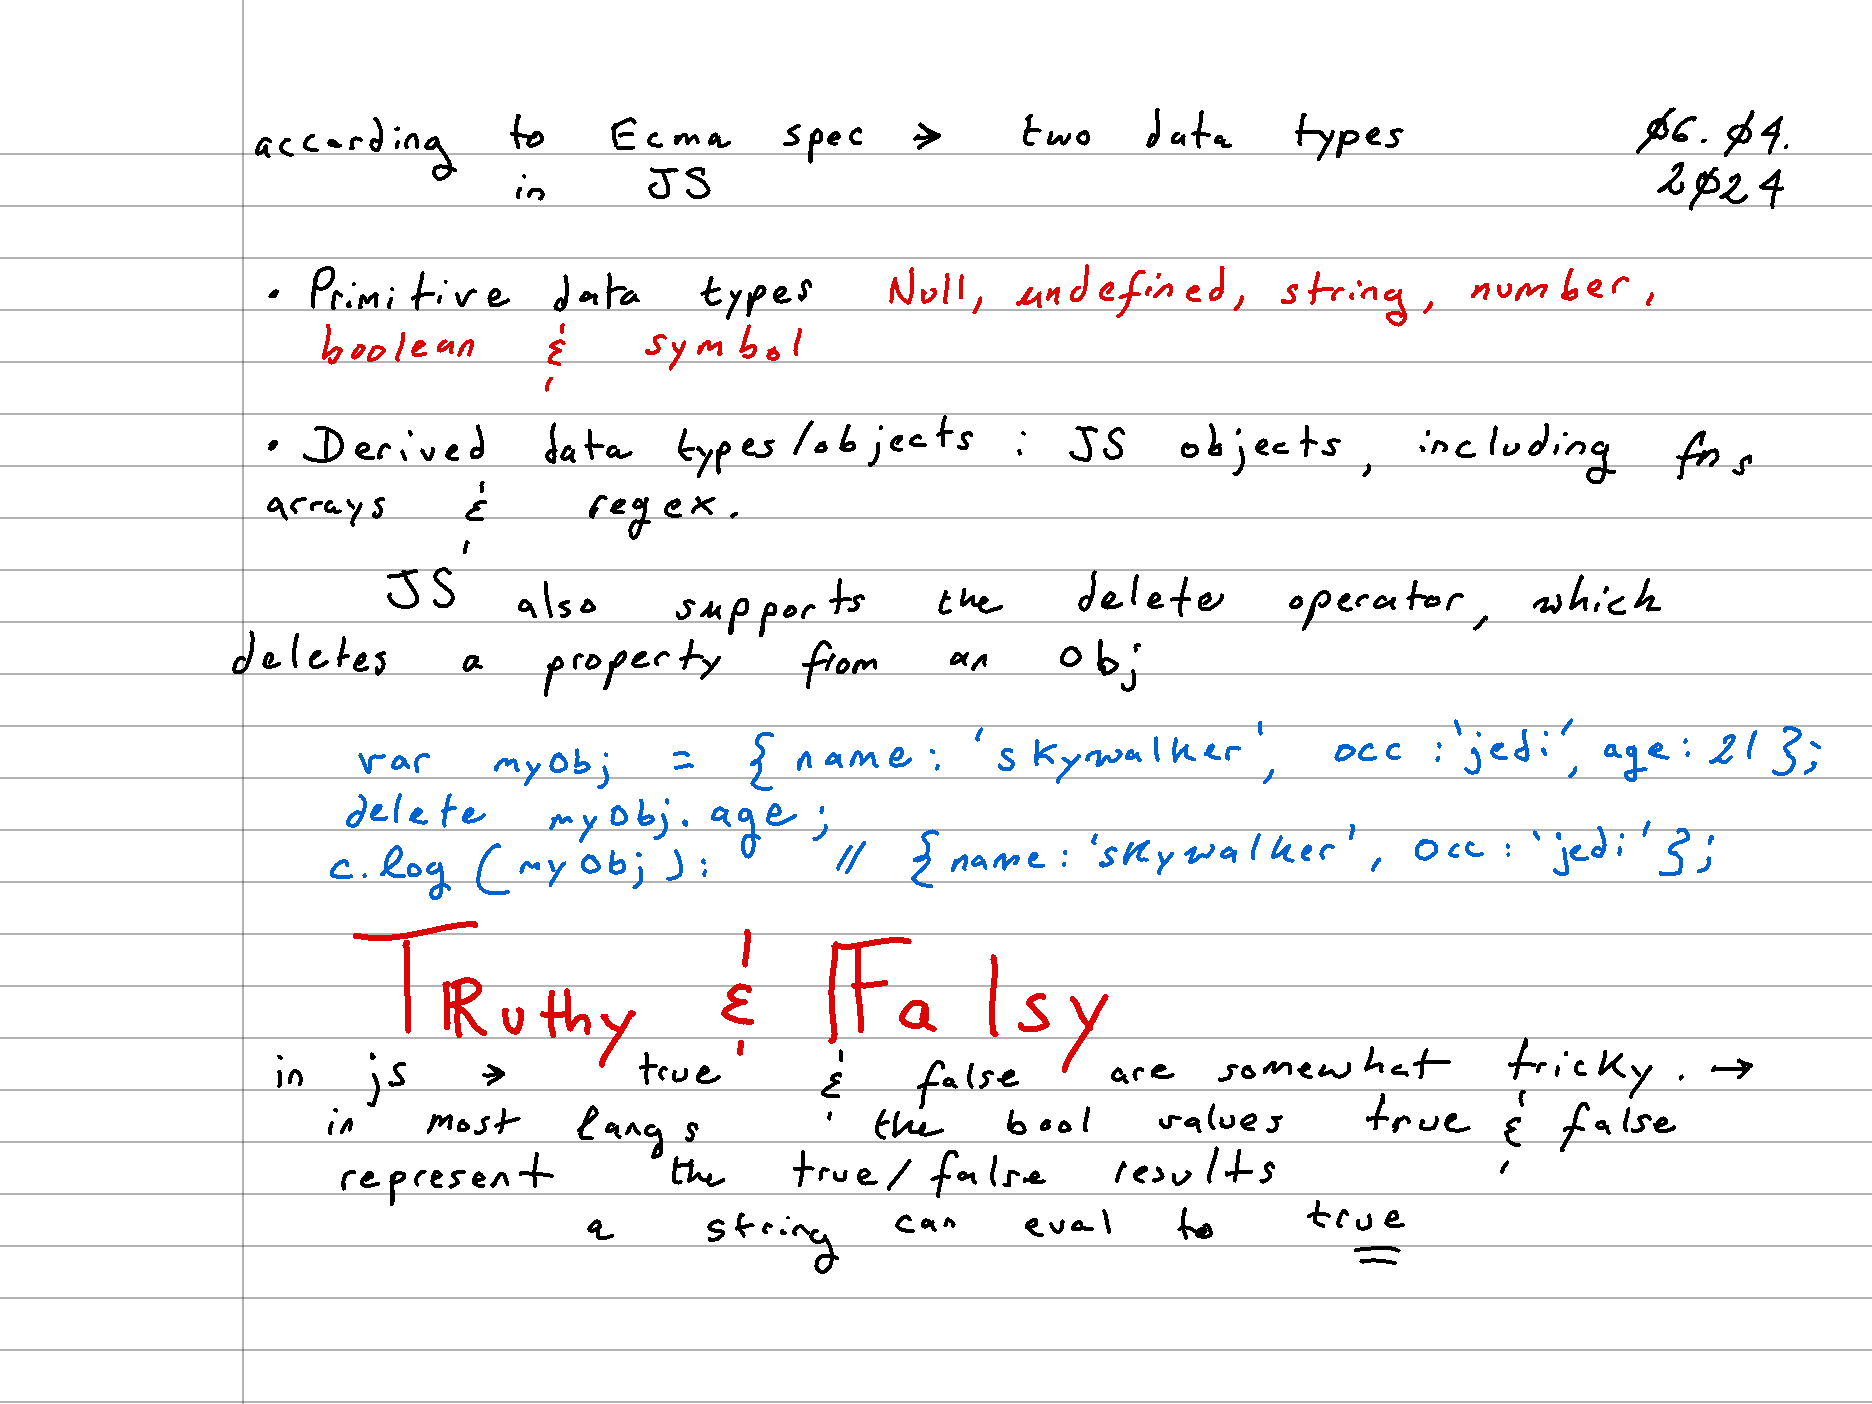 according to Ecma spec → two data types ø6. ø4.
in JS 2ø24
• Primitive data types Null, undefined, string, number,
boolean & symbol
• Derived data types/objects : JS objects, including fns
arrays & regex.
JS also supports the delete operator, which
deletes a property from an obj
var myObj = { name: 'skywalker', occ : 'jedi', age: 21 };
delete myObj. age;
c.log (myObj): // {name: 'skywalker', occ: 'jedi' };
TRuthy & Falsy
in js → true & false are somewhat tricky. →
in most langs the bool values true & false
represent the true/false results
a string can eval to true